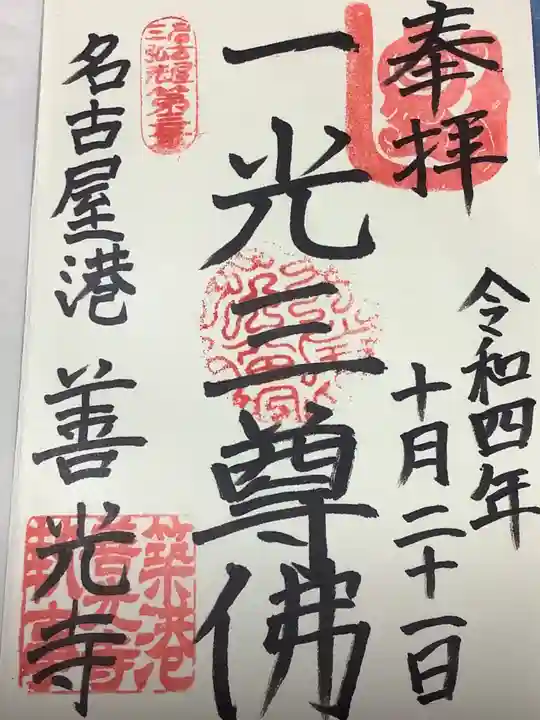 奉拝
令和四年
十月二十一日
一光三尊佛
名古屋港 善光寺
築港